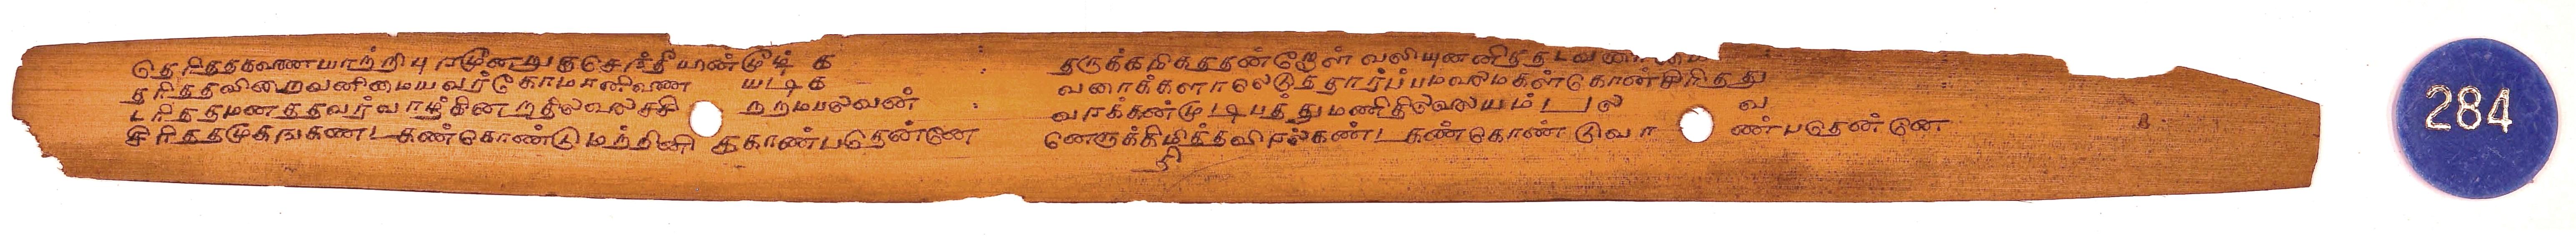 தெரிததகணையாற்றிபுரமூனறுஞசெந்தீயின்மூழ்க
தரிததவிறைவனிமையவர்கோமானிணை யடிக
டரிததமனத்தவர்வாழ்கினறதிலலைசசி றறமபலவன்
சிரிததமுகஙகணடகண்கொண்டுமற்றினி ககாண்பதென்னே
தருக்குமிகுததன்றோள்வலியுன்னிததடவரை
வரைக்களாலெடுத்தார்ப்பமலைமகள்கோன்சிரித்து
வரக்கன்முடிபத்துமணிதில்லையம்பல வ
னெருக்கிமிதித்தவிரல்கண்டகண்கொண்டுகா ண்பதென்னே
284